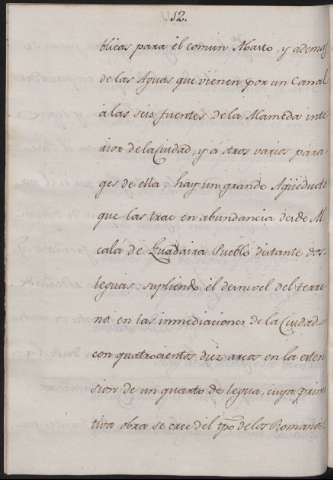 12.
blicas para el comun Abasto, y ademas
de las Aguas que vienen por un Canal
á las seis fuentes de la Alameda inte
rior de la Ciudad, y á otros varios para
ges de ella; hay un grande Aqüeducto
que las trae en abundancia desde Al
cala de Guadaira Pueblo distante dos
leguas: supliendo el desnivel del terre
no en las inmediaciones de la Ciudad
con quatrocientos diez arcos en la esten
sion de un quarto de legua, cuya primi
tiva obra se cree del tpõ. de los Romanos